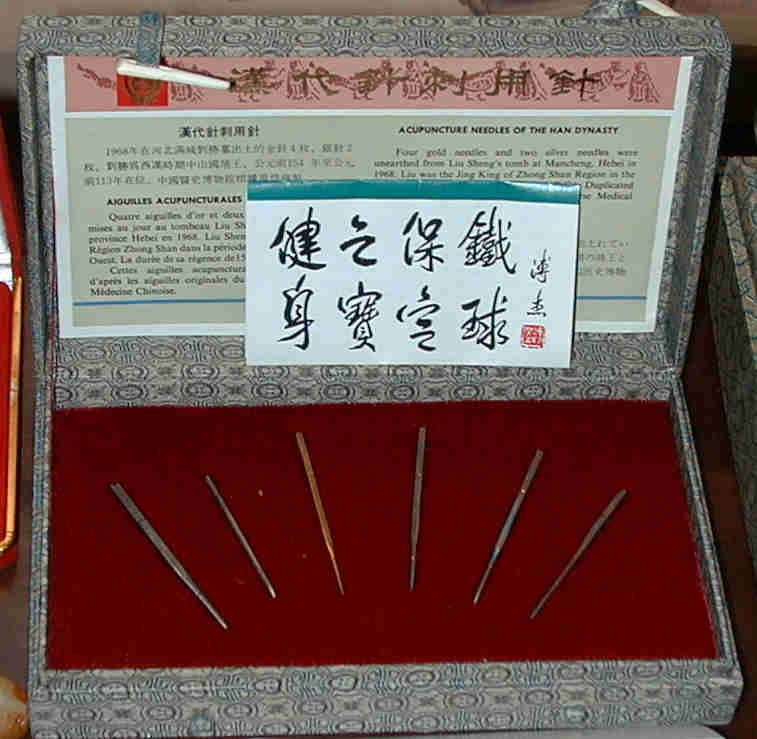 漢代針刺用針
漢代針刺用針
1968年在河北滿城劉勝墓出土的金針4枚，銀針2
枚，劉勝爲西漢時期中山國靖王，公元前154 年至公元
前113年在位。中國醫史博物館
AIGUILLES ACUPUNCTURALES
Quatre aiguilles d'or et deux
mises au jour au tombeau Liu Sh
province Hebei en 1968. Liu Shen
Région Zhong Shan dans la période
Ouest. La durée de sa régence de15
Cettes aiguilles acupunctura
d'après les aiguilles originales du
Médecine Chinoise.
ACUPUNCTURE NEEDLES OF THE HAN DYNASTY
Four gold needles and two silver needles were
unearthed from Liu Sheng's tomb at Mancheng, Hebei in
1968. Liu was the Jing King of Zhong Shan Region in the
Duplicated
Medical
鐵球
保定
之寶
健身
溥杰